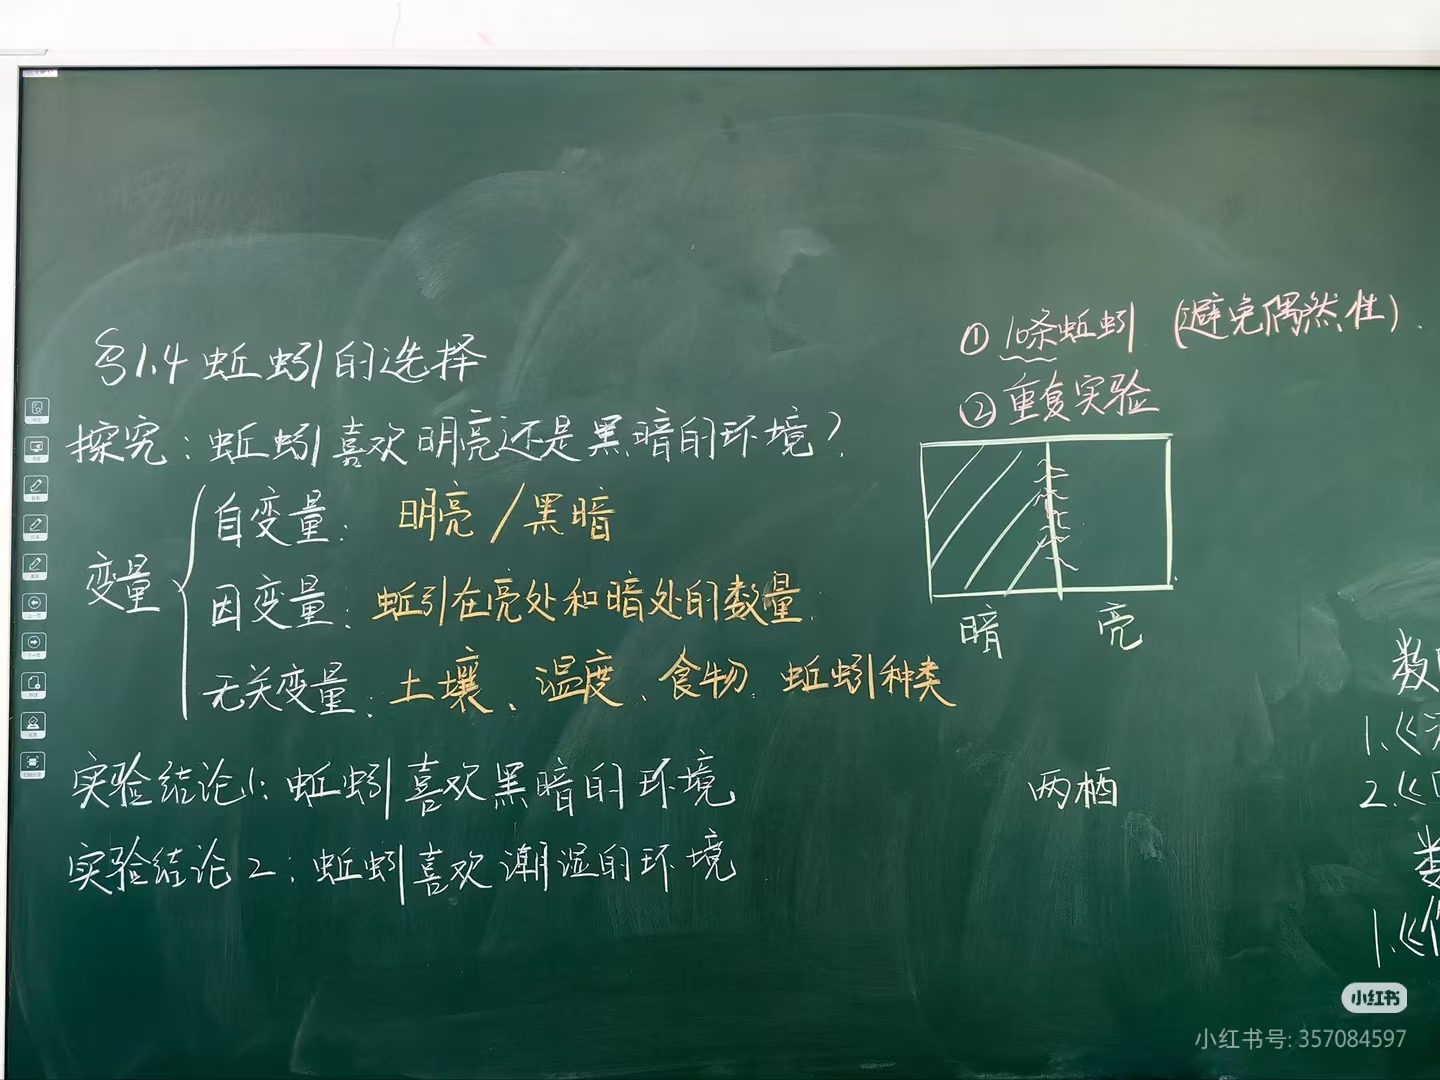 §1.4 蚯蚓的选择
探究：蚯蚓喜欢明亮还是黑暗的环境？
变量
自变量：明亮/黑暗
因变量：蚯引在亮处和暗处的数量.
无关变量：土壤、温度、食物、蚯蚓种类
实验结论1：蚯蚓喜欢黑暗的环境
实验结论2：蚯蚓喜欢潮湿的环境.
① 10条蚯蚓（避免偶然性）.
② 重复实验
暗 亮
数
1.《
2.《
1.《
小红书
小红书号: 357084597